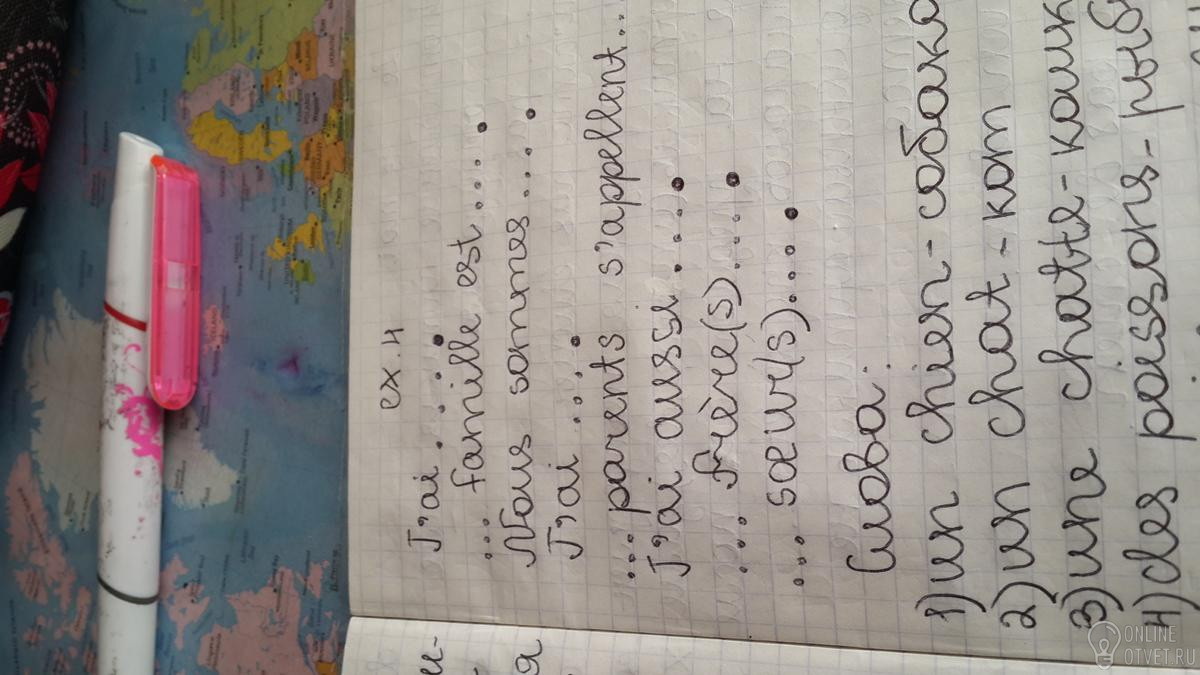 ex. 4
J'ai.....
... famille est.....
Nous sommes.....
J'ai....
... parents s'appellent...
J'ai aussi.....
... frère(s)....
... sœur(s)....
Слова:
1) un chien - собака
2) un chat - кот
3) une chatte - кошк
4) des poissons - рыб
ONLINE
OTVET.RU